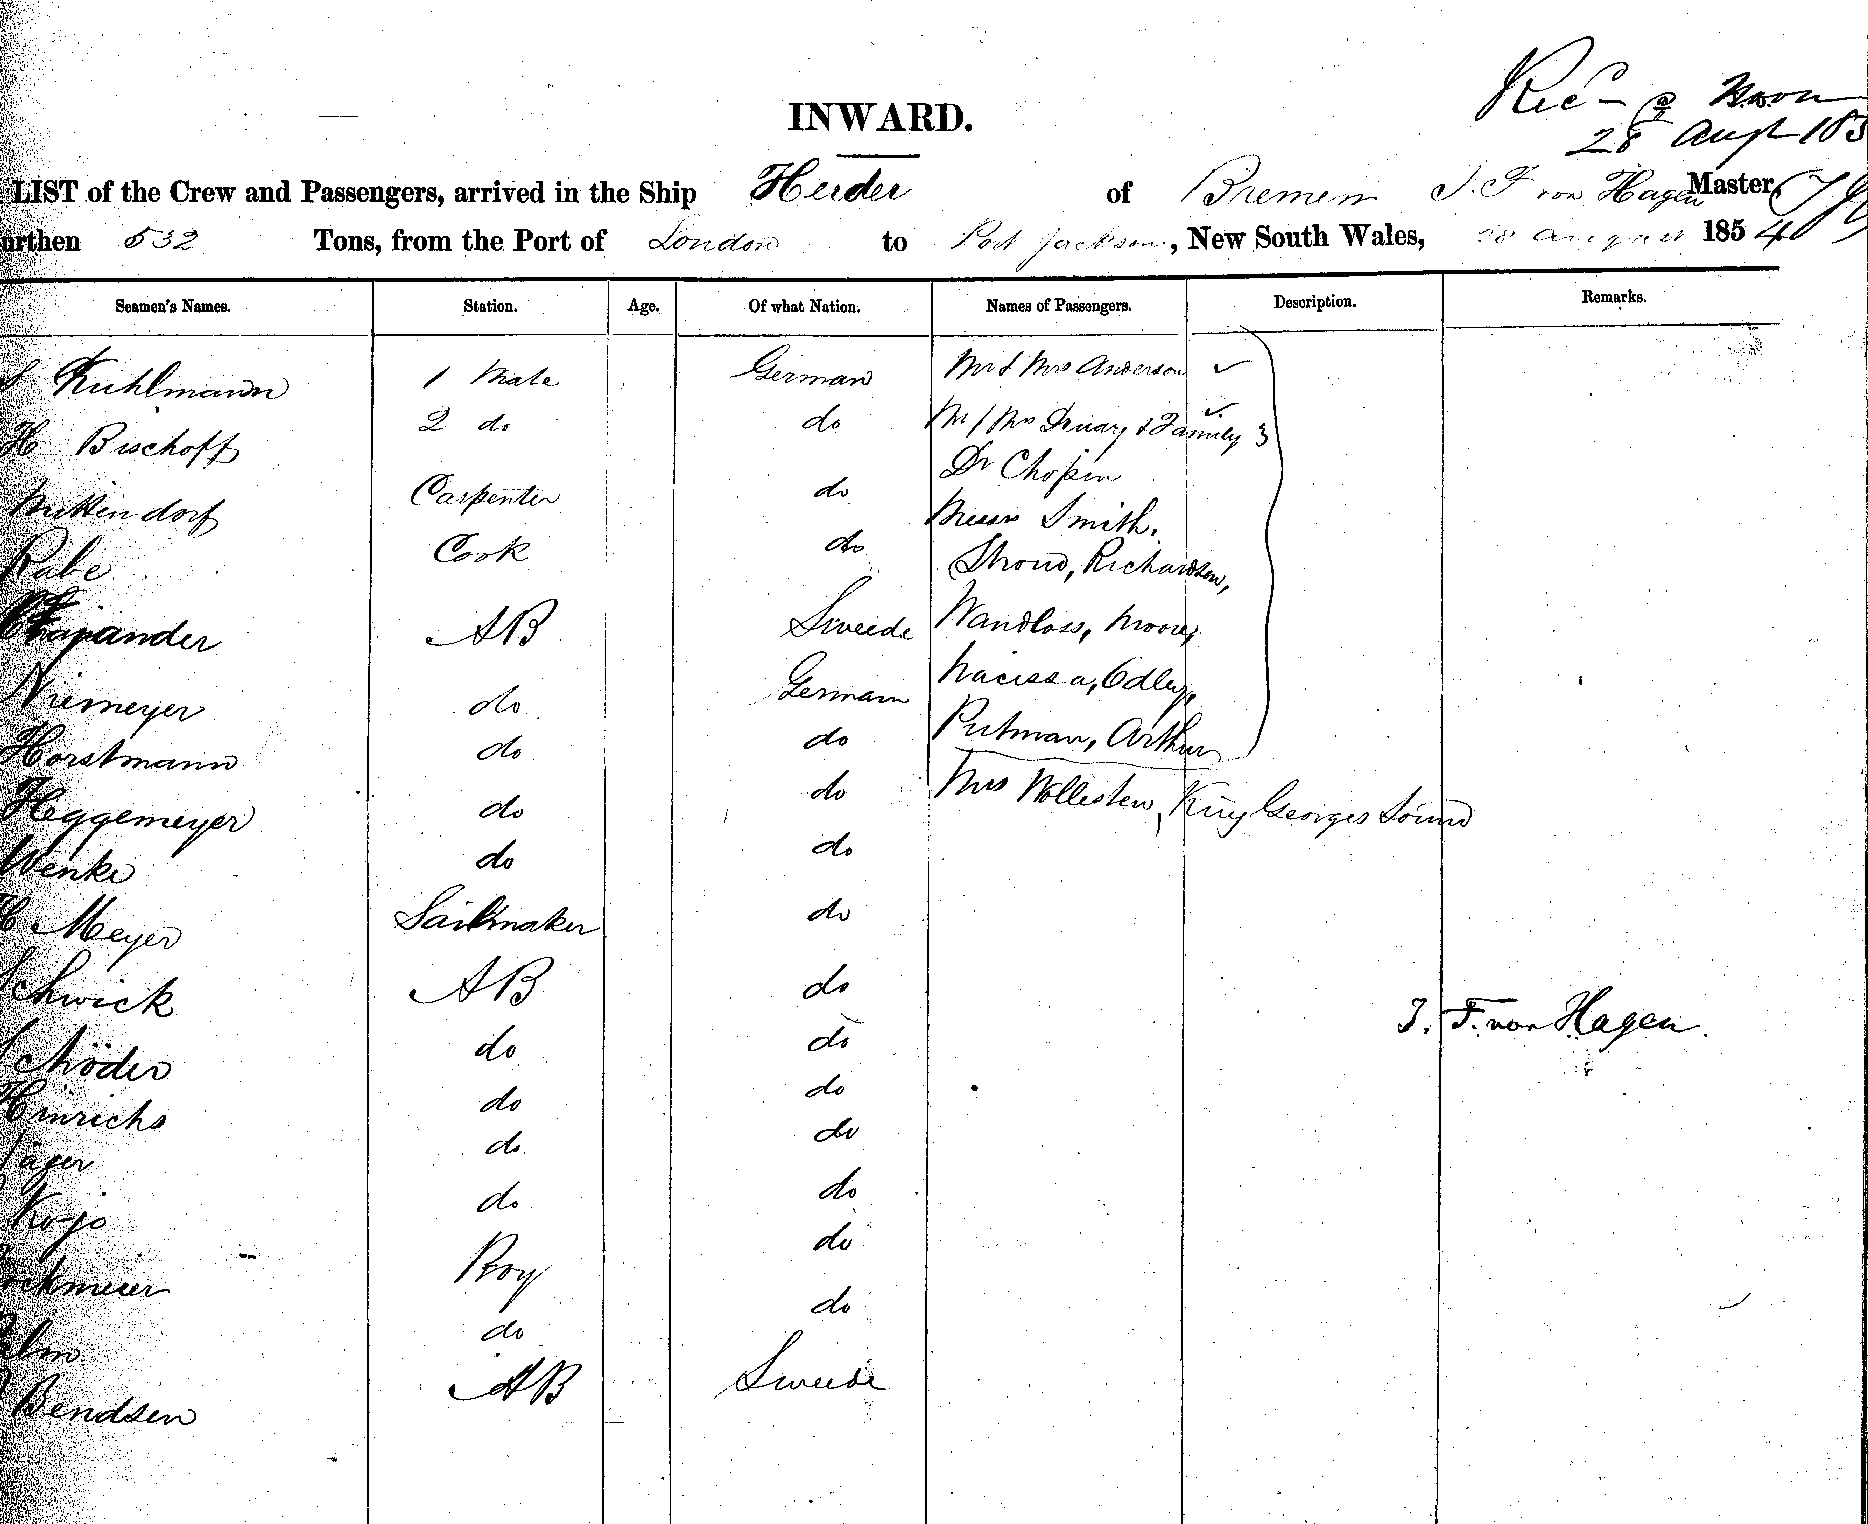 Recd @ Noon
28 Augt 185
INWARD.
LIST of the Crew and Passengers, arrived in the Ship Herder of Bremen J. F von Hagen Master,
urthen 532 Tons, from the Port of London to Port Jackson, New South Wales, 28 August 1854
Seamen's Names. Station. Age. Of what Nation. Names of Passengers. Description. Remarks.
Kuhlmann 1 Mate German Mr & Mrs Anderson ✓
H Bischoff 2 do do Mr / Mrs Druary & Family 3
Dr Chopin
Mittendorf Carpenter do Messrs Smith,
Rabe Cook do Stroud, Richardson,
ander AB Sweede Wandloss, Moore,
Niemeyer do German Odley,
Horstmann do do Putman, Arthur
Heggemeyer do do Mrs Wollesten, King Georges Sound
Wenke do do
C Meyer Sailmaker do
Schwick AB do
J. F. von Hagen.
Schöder do do
Hinrichs do do
Jäger do do
Kojo do do
ckmeier Boy do
lm do do
Bendsen AB Sweede